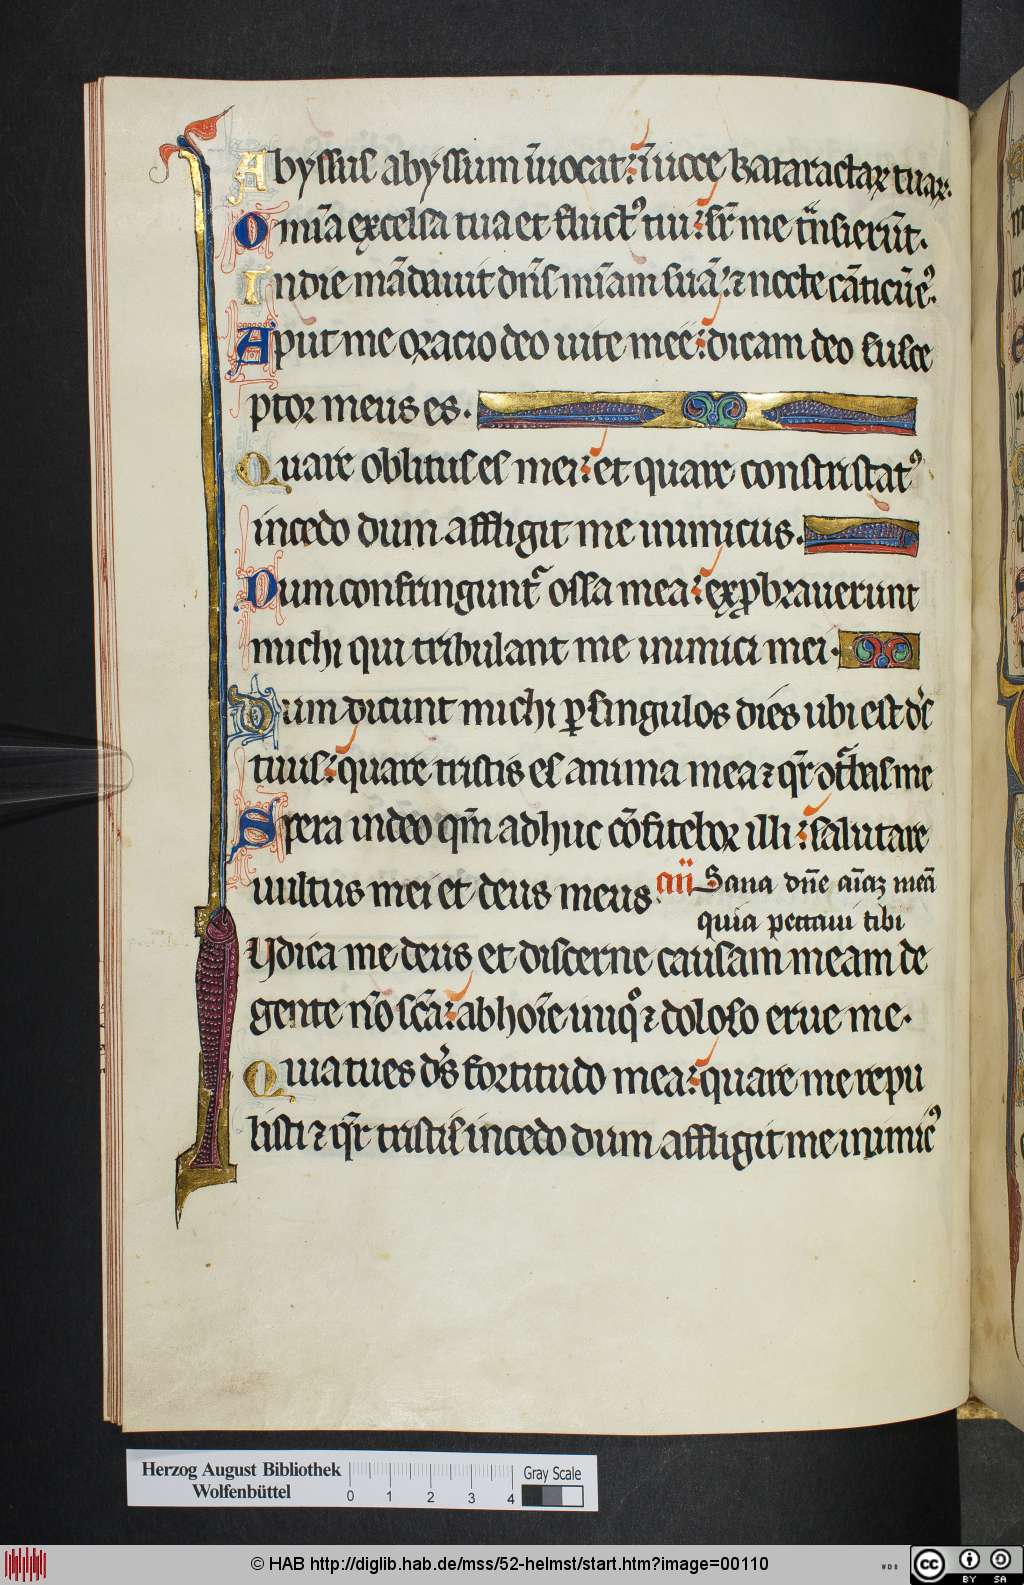 Abyssus abyssum īuocat: ī uoce kataractaꝝ tuaꝝ.
Omīa excelsa tua et fluctꝰ tui: sr̄ me tn̄sierūt.
In die mādauit dn̄s mīam suā: ⁊ nocte cāticū eꝰ.
Aput me oracio deo uite mee: dicam deo susce
ptor meus es.
Quare oblitus es mei: et quare constristatꝰ
incedo dum affligit me inimicus.
Dum confringunt᷑ ossa mea: exꝓbrauerunt
michi qui tribulant me inimici mei.
Dum dicunt michi ꝑ singulos dies ubi est ds̄
tuus: quare tristis es anima mea ⁊ qr̄ ɔt᷑bas me
Spera in deo qm̄ adhuc cōfitebor illi: salutare
uultus mei et deus meus. añ Sana dn̄e aīaꝫ meā
quia peccaui tibi
Ydica me deus et discerne causam meam de
gente nō scā: ab hoīe iniqͦ ⁊ doloso erue me.
Quia tu es ds̄ fortitudo mea: quare me repu
listi ⁊ qr̄ tristis incedo dum affligit me inimicꝰ
Herzog August Bibliothek
Wolfenbüttel
0 1 2 3 4
Gray Scale
© HAB http://diglib.hab.de/mss/52-helmst/start.htm?image=00110
WDB
cc BY SA